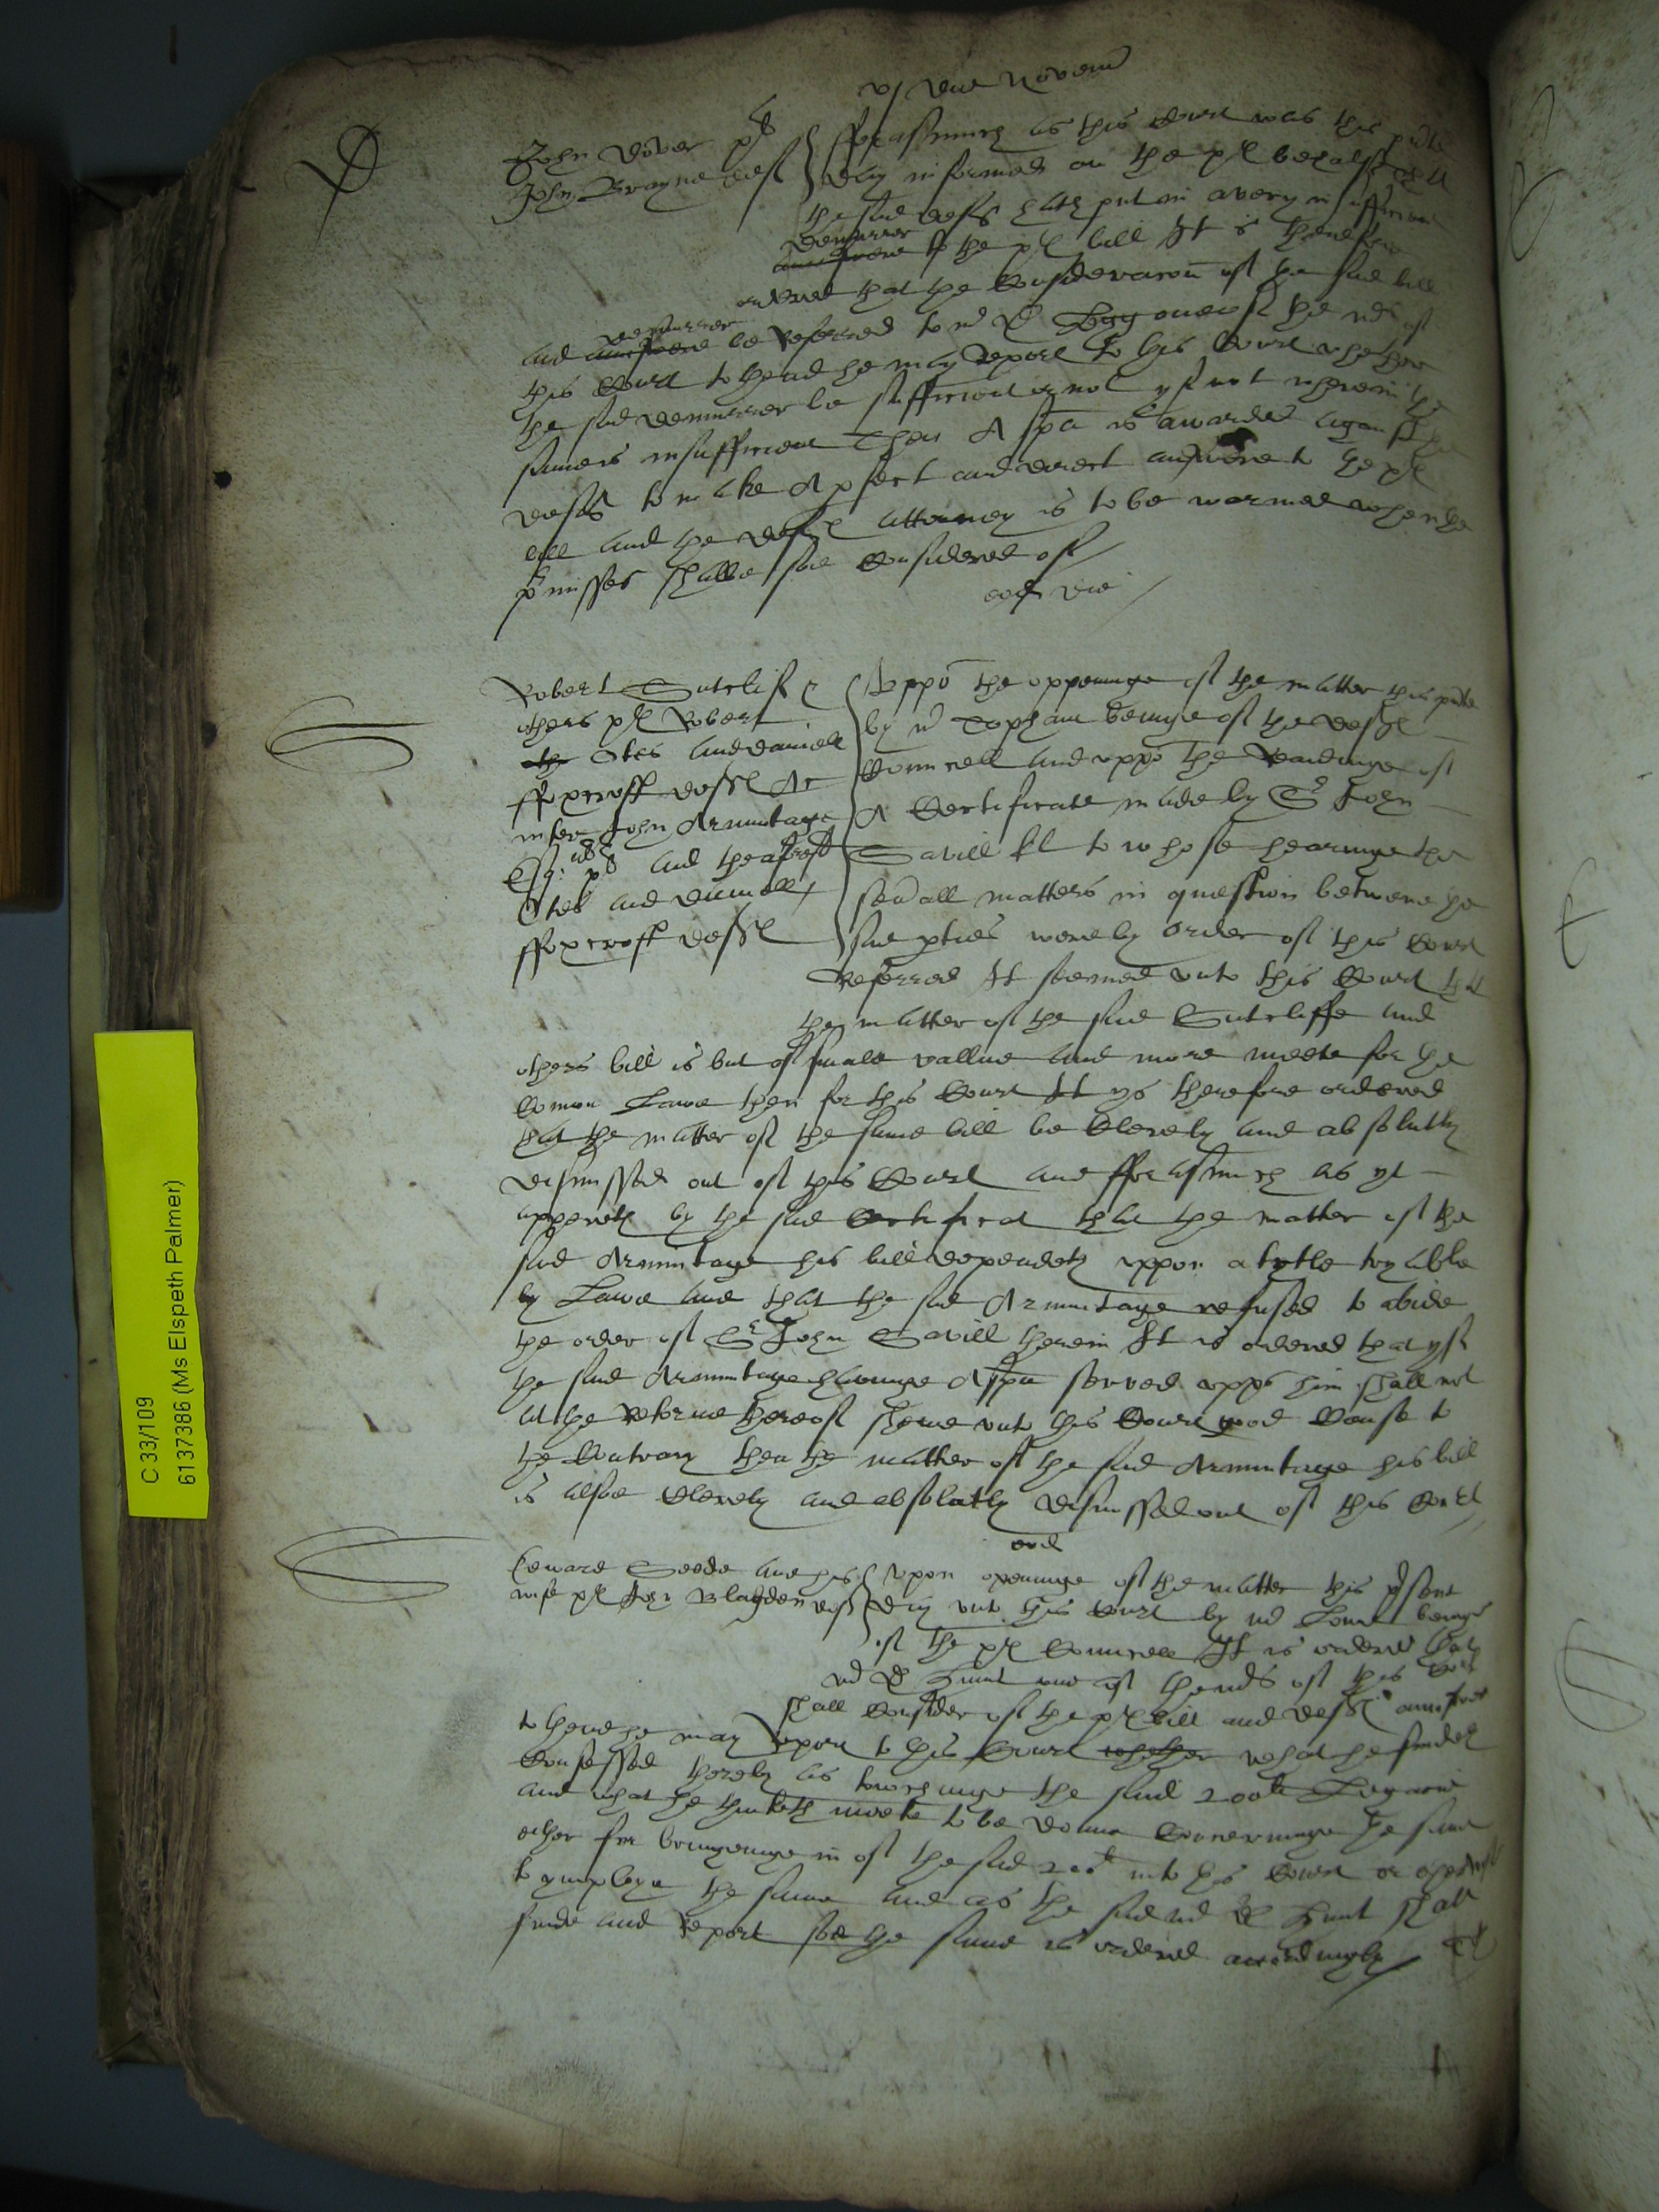 vj die Novem
John Dover pl
John Brayne def
fforasmuch as this Court was this pnte
day informed on the pl behalfe that
the said defts hath put in a very insufficient
demurrer
answere to the pl bill It is therefore
ordered that the Consideracon of the said bill
demurrer
and answere be Referred to mr D Legg one of the mrs of
this Court to thend he may Report to this Court whether
the said demurrer be sufficient or not yf not wherein the
same is insufficient Then A spa is awarded against the
defts to make A pfect and direct answere to the pl
bill and the defts Attorney is to be warned when the
pmisses shalbe soe Considered of
eod die
Robert Sutclif &
others pl Robert
oth Otes and daniell
ffoxcroft defts Ac
inter John Armitage
Esq: pl and the aforesd
Otes and daniell
ffoxcroft defts
Uppo the oppeninge of the matter this pnte
by mr Topham beinge of the defts
Councell and uppo the Readinge of
A Certificate made by Sr John
Savill kt to whose hearinge the
sevall matters in question betwene the
said pties were by order of this Court
Referred It seemed unto this Court that
the matter of the said Sutcliffe and
others bill is but of smale vallue and more meete for the
Comon Lawe then for this Court It ys therefore ordered
that the matter of the same bill be Clerely and absolutly
dismissed out of this Court and fforasmuch as yt
appereth by the said Certificat that the matter of the
said Armitage his bill dependeth uppon a tytle tryable
by Lawe and that the said Armitage refused to abide
the order of Sr John Savill therein It is ordered that yf
the said Armitage havinge A spa served uppo him shall not
at the Retorne thereof shewe unto this Court good Cause to
the Contrary then the matter of the said Armitage his bill
is alsoe Clerely and absolutly dismissed out of this Court
eod
Edward Seede and his
wife pl John Blagden def
Upon openinge of the matter this psent
day unto this Court by mr Lowe beinge
of the pl Councell It is ordered that
mr D Hunt one of the mrs of this Court
shall Consider of the pl bill and defts answere
to thend he may Report to this Court whether what he findeth
Confessed thereby as towchinge the said 200li Legacie
and what he thinketh meete to be donne Concerninge the same
ether for bringeinge in of the said 200li into this Court or otherwise
to ymploye the same and as the said mr D Hunt shall
finde and Report soe the same is ordered accordingly
C 33/109
6137386 (Ms Elspeth Palmer)